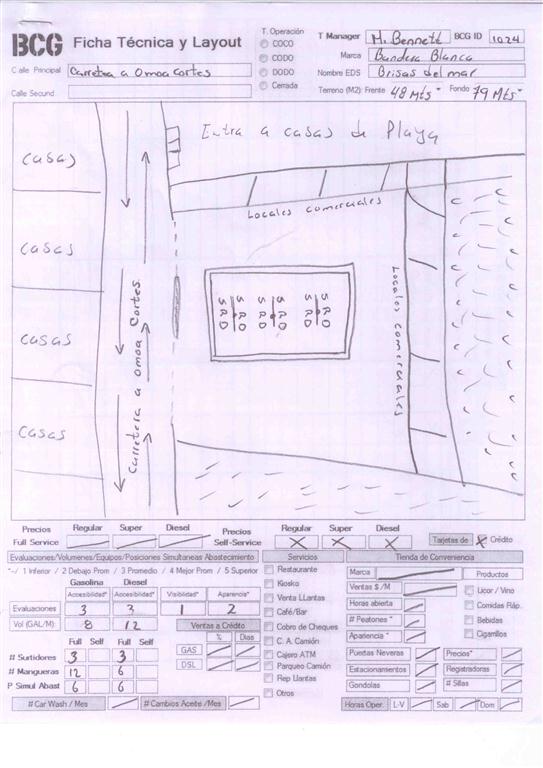 BCG Ficha Técnica y Layout
T. Operación
COCO
CODO
DODO
Cerrada
T Manager M. Bennett BCG ID 1024
Marca Bandera Blanca
Nombre EDS Brisas del mar
Terreno (M2): Frente 48 Mts Fondo 79 Mts
Calle Principal Carretra a Omoa Cortes
Calle Secund.
Entra a casas de Playa
casas
casas
casas
casas
Carretera a Omoa Cortes
Locales comerciales
Locales comerciales
S R D S R D S R D
S R D S R D S R D
Precios Regular Super Diesel
Full Service
Precios Regular Super Diesel
Self-Service X X X
Tarjetas de X Crédito
Evaluaciones/Volumenes/Equipos/Posiciones Simultaneas Abastecimiento
*-/ 1 Inferior / 2 Debajo Prom / 3 Promedio / 4 Mejor Prom / 5 Superior
Gasolina Diesel
Accesibilidad* Accesibilidad* Visibilidad* Aparencia*
Evaluaciones 3 3 1 2
Vol (GAL/M) 8 12
Ventas a Crédito
% Dias
GAS
DSL
Full Self Full Self
# Surtidores 3 3
# Mangueras 12 6
P Simul Abast 6 6
# Car Wash / Mes
# Cambios Aceite /Mes
Servicios
Restaurante
Kiosko
Venta LLantas
Café/Bar
Cobro de Cheques
C. A. Camión
Cajero ATM
Parqueo Camión
Rep Llantas
Otros
Tienda de Conveniencia
Marca
Ventas $ /M
Horas abierta
# Peatones *
Apariencia *
Productos
Licor / Vino
Comidas Ráp.
Bebidas
Cigarrilos
Puertas Neveras
Precios*
Estacionamientos
Registradoras
Gondolas
# Sillas
Horas Oper. L-V Sab Dom